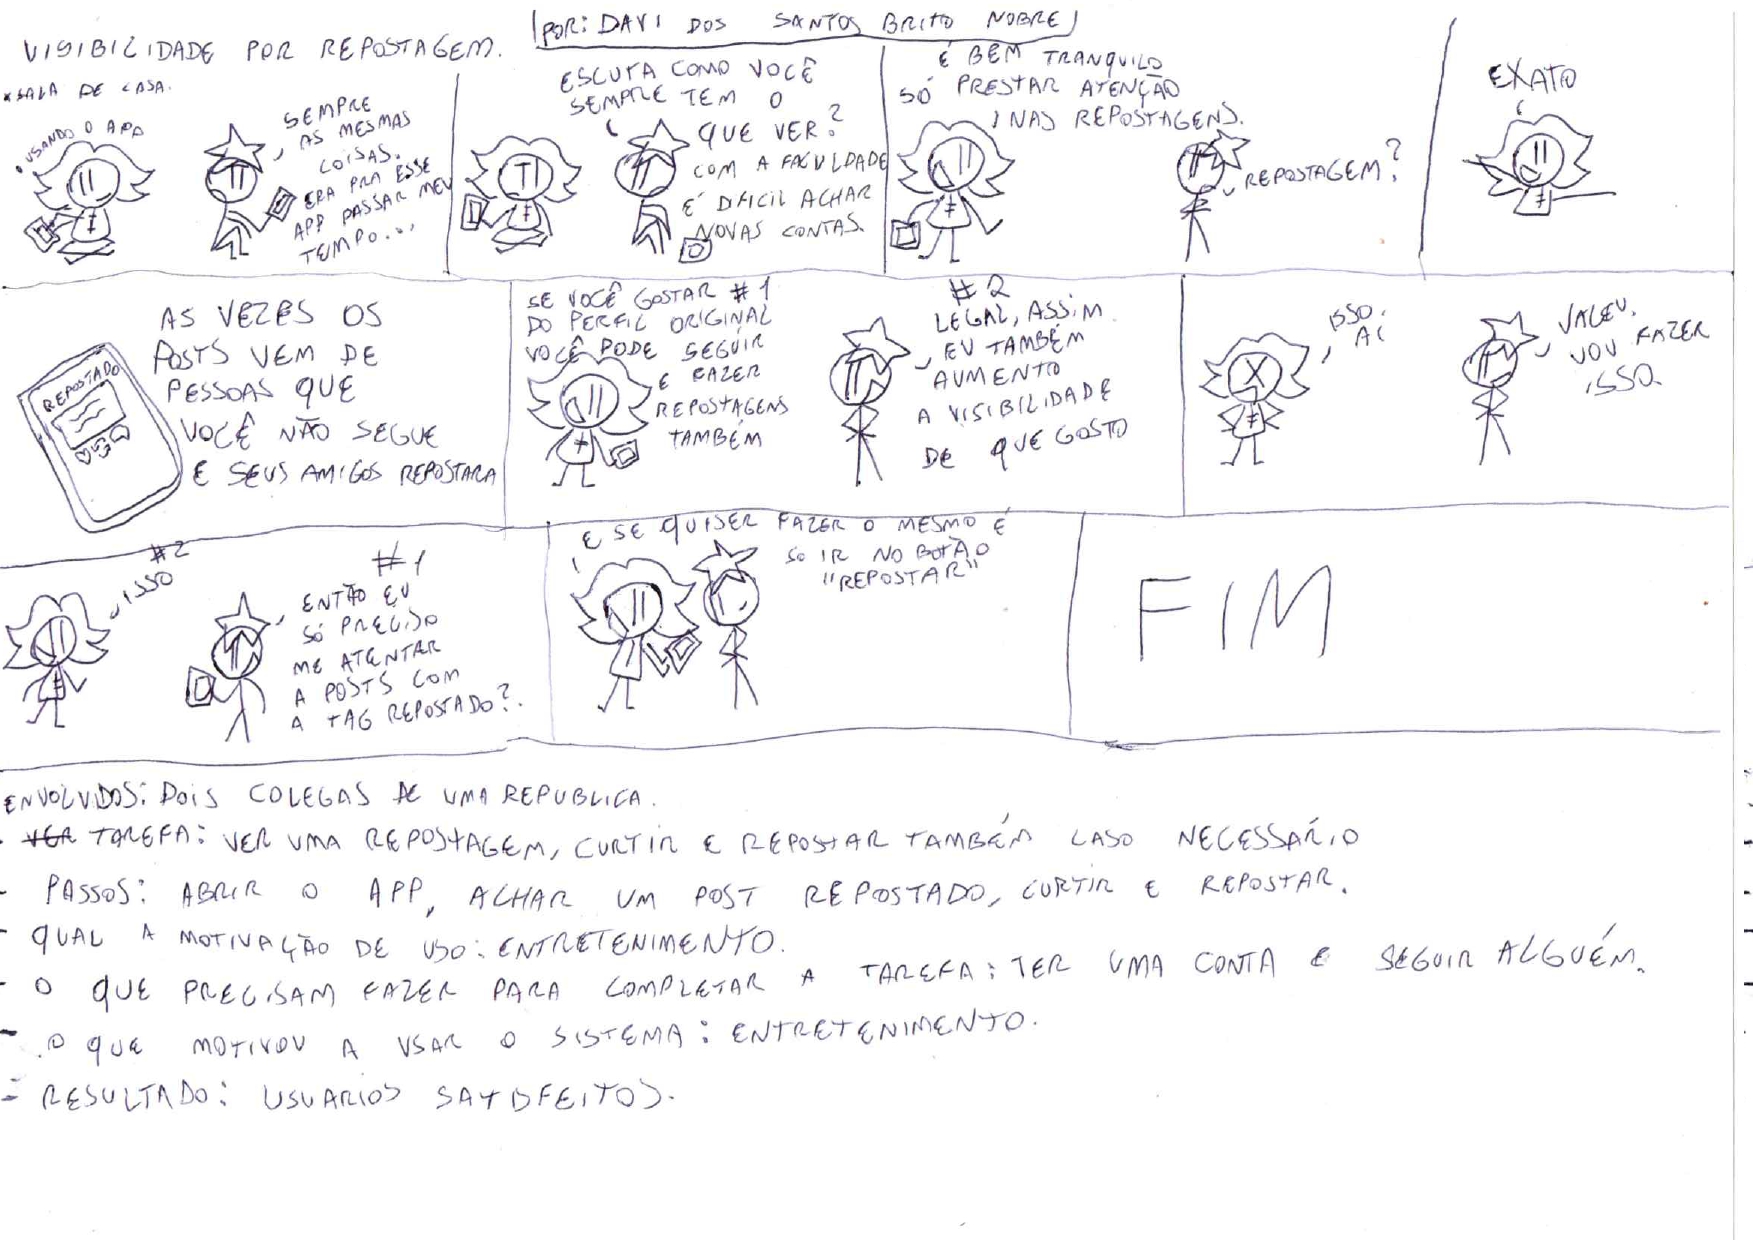 VISIBILIDADE POR REPOSTAGEM.
POR: DAVI DOS SANTOS BRITO NOBRE
*SALA DE CASA.
*USANDO O APP
SEMPRE
AS MESMAS
COISAS.
ERA PRA ESSE
APP PASSAR MEU
TEMPO...
ESCUTA COMO VOCÊ
SEMPRE TEM O
QUE VER?
COM A FACULDADE
É DIFICIL ACHAR
NOVAS CONTAS.
É BEM TRANQUILO
SÓ PRESTAR ATENÇÃO
NAS REPOSTAGENS.
REPOSTAGEM?
EXATO
REPOSTADO
AS VEZES OS
POSTS VEM DE
PESSOAS QUE
VOCÊ NÃO SEGUE
E SEUS AMIGOS REPOSTARA
SE VOCÊ GOSTAR #1
DO PERFIL ORIGINAL
VOCÊ PODE SEGUIR
E FAZER
REPOSTAGENS
TAMBÉM
#2
LEGAL, ASSIM
EU TAMBÉM
AUMENTO
A VISIBILIDADE
DE QUE GOSTO
ISSO
AÍ
VALEU,
VOU FAZER
ISSO.
#2
ISSO
#1
ENTÃO EU
SÓ PRECISO
ME ATENTAR
A POSTS COM
A TAG REPOSTADO?
E SE QUISER FAZER O MESMO É
SO IR NO BOTÃO
"REPOSTAR"
FIM
ENVOLVIDOS: DOIS COLEGAS DE UMA REPUBLICA.
- VER TAREFA: VER UMA REPOSTAGEM, CURTIR E REPOSTAR TAMBÉM CASO NECESSÁRIO
- PASSOS: ABRIR O APP, ACHAR UM POST REPOSTADO, CURTIR E REPOSTAR.
- QUAL A MOTIVAÇÃO DE USO: ENTRETENIMENTO.
- O QUE PRECISAM FAZER PARA COMPLETAR A TAREFA: TER UMA CONTA E SEGUIR ALGUÉM.
- O QUE MOTIVOU A USAR O SISTEMA: ENTRETENIMENTO.
- RESULTADO: USUARIOS SATISFEITOS.